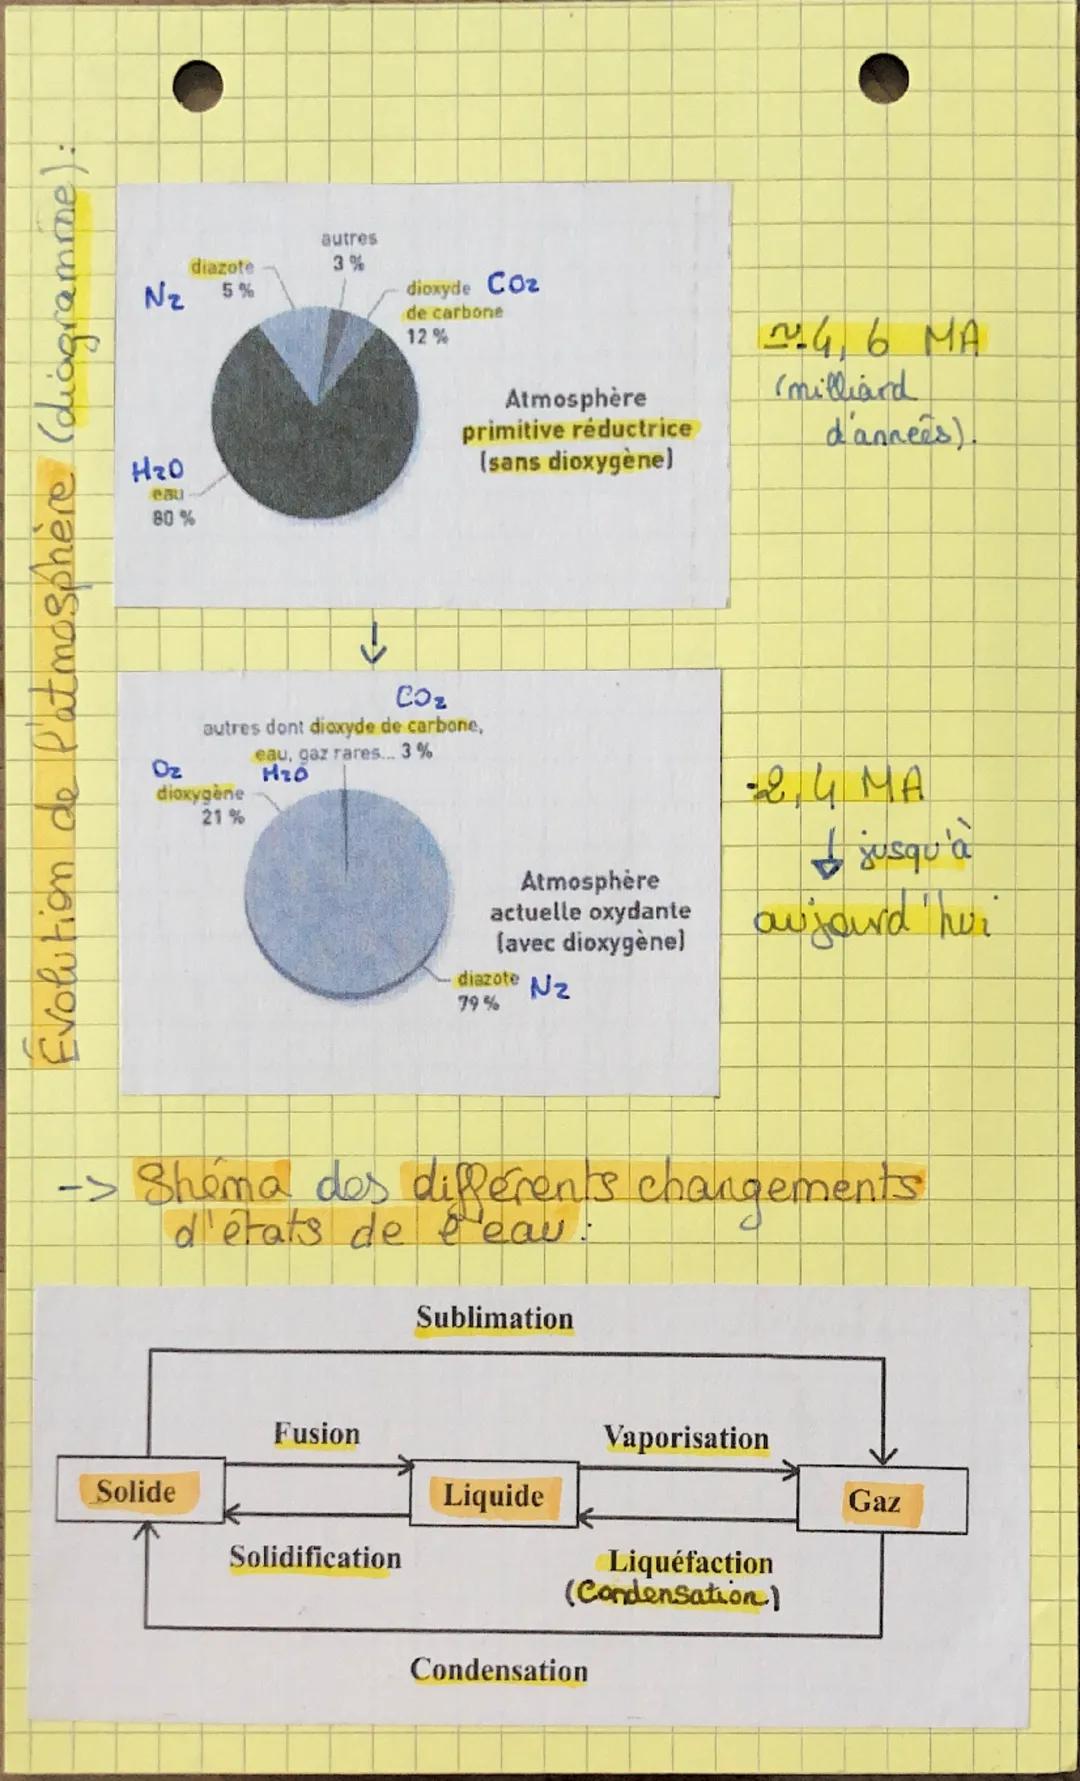 Évolution de l'atmosphère (diagramme):
autres
3 %
diazote
5 %
N2
dioxyde
de carbone
12 %
CO2
H2O
eau
80 %
Atmosphère
primitive réductrice
(sans dioxygène)
≈-4,6 MA
(milliard
d'années).
↓
CO2
autres dont dioxyde de carbone,
eau, gaz rares... 3 %
H2O
O2
dioxygène
21 %
Atmosphère
actuelle oxydante
(avec dioxygène)
diazote
79 %
N2
-2,4 MA
↓ jusqu'à
aujourd'hui
-> Shéma des différents changements
d'états de l'eau :
Sublimation
Fusion
Vaporisation
Solide
Liquide
Gaz
Solidification
Liquéfaction
(Condensation)
Condensation